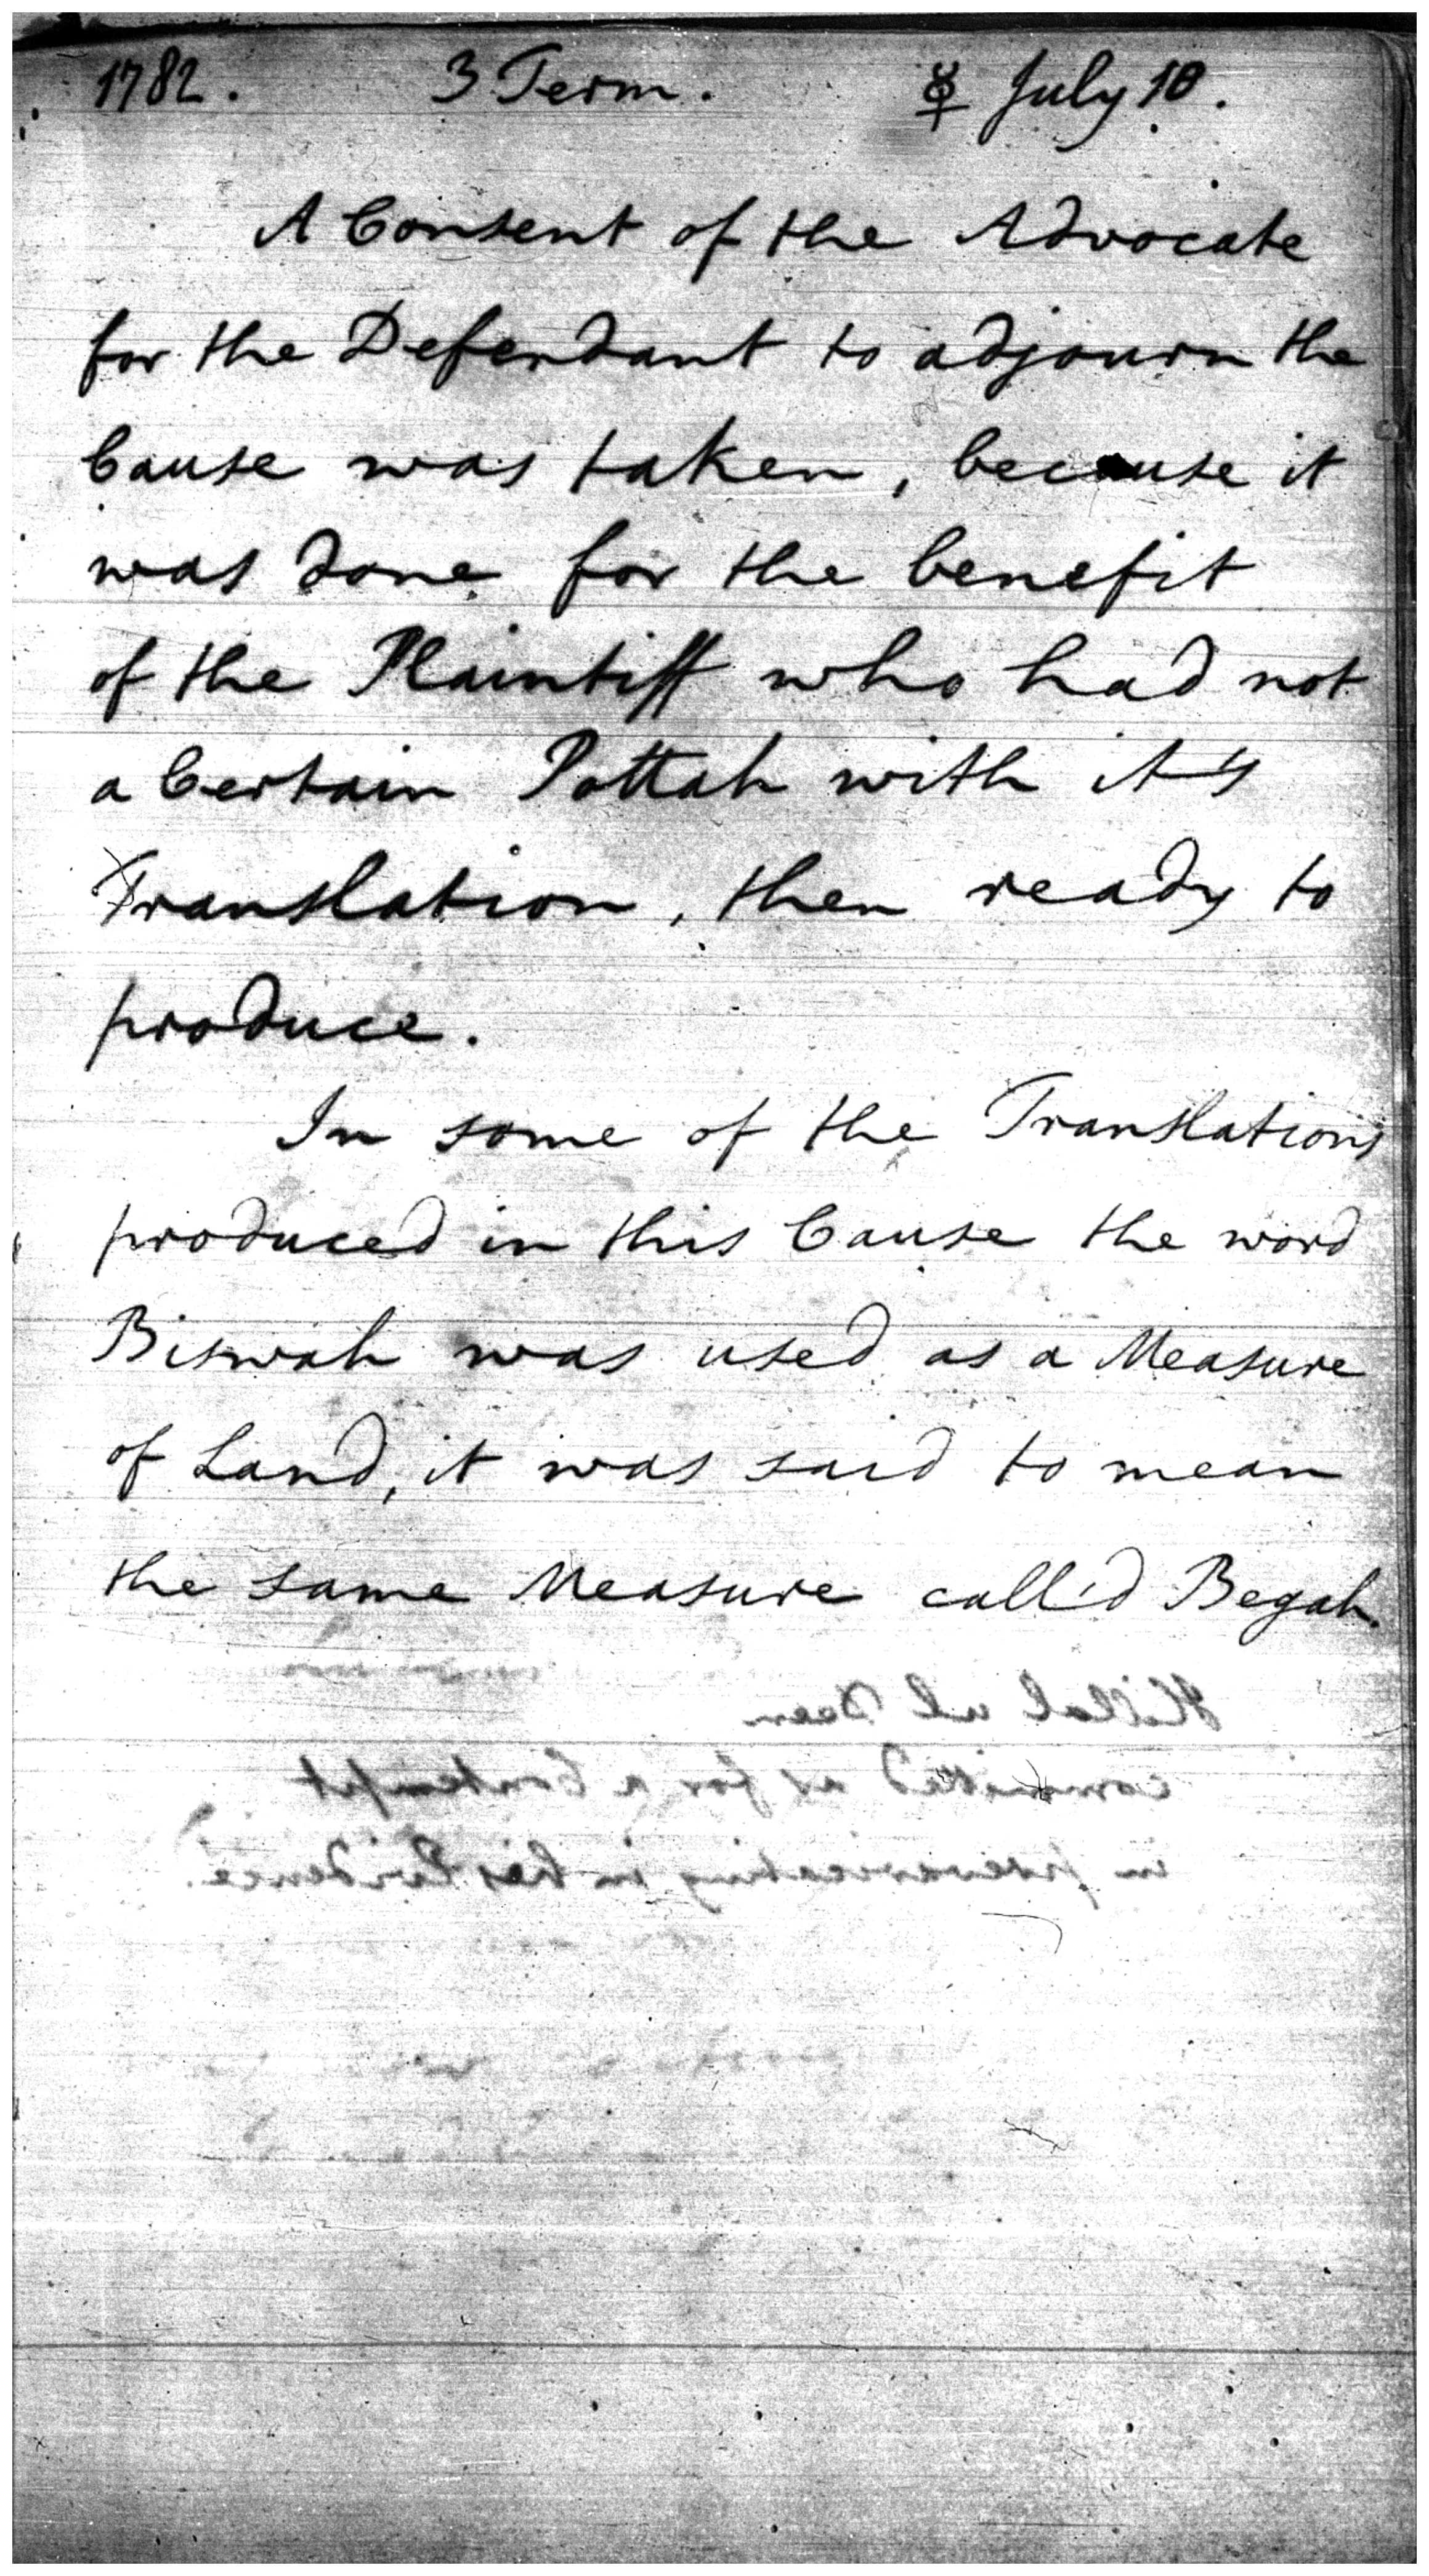 1782. 3 Term. ☿ July 10.
A Consent of the Advocate
for the Defendant to adjourn the
Cause was taken, because it
was done for the benefit
of the Plaintiff who had not
a Certain Pottah with it's
Translation, then ready to
produce.
In some of the Translations
produced in this Cause the word
Biswah was used as a Measure
of Land, it was said to mean
the same Measure call'd Begah.